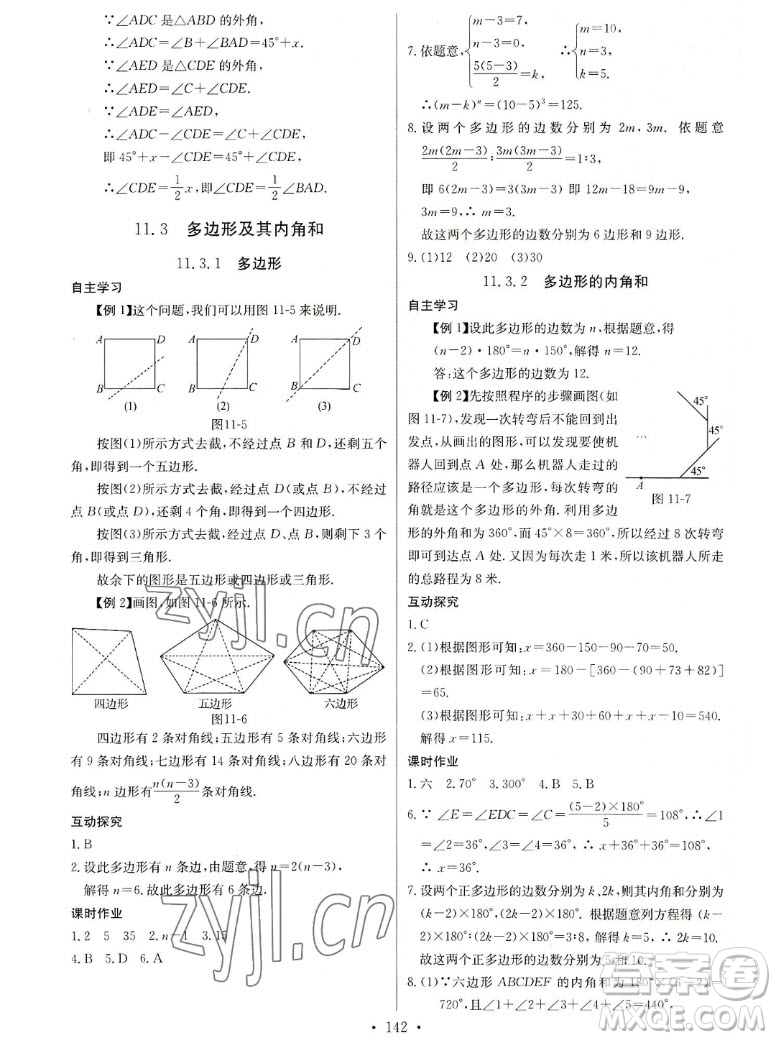 ∵∠ADC 是△ABD 的外角,
∴∠ADC=∠B+∠BAD=45°+x.
∵∠AED 是△CDE 的外角,
∴∠AED=∠C+∠CDE=45°+∠CDE,
∵∠ADE=∠AED,
∴∠ADC-∠CDE=∠C+∠CDE,
即 45°+x-∠CDE=45°+∠CDE,
∴∠CDE=1/2 x,即∠CDE=1/2∠BAD.
11.3 多边形及其内角和
11.3.1 多边形
自主学习
【例 1】这个问题,我们可以用图 11-5 来说明.
A D A D A D
B C B C B C
(1) (2) (3)
图11-5
按图(1)所示方式去截,不经过点 B 和 D,还剩五个
角,即得到一个五边形.
按图(2)所示方式去截,经过点 D(或点 B),不经过
点 B(或点 D),还剩 4 个角,即得到一个四边形.
按图(3)所示方式去截,经过点 D、点 B,则剩下 3 个
角,即得到三角形.
故余下的图形是五边形或四边形或三角形.
【例 2】画图,如图 11-6 所示.
四边形 五边形 六边形
图11-6
四边形有 2 条对角线;五边形有 5 条对角线;六边形
有 9 条对角线;七边形有 14 条对角线;八边形有 20 条对角
线;n 边形有n(n-3)/2条对角线.
互动探究
1. B
2. 设此多边形有 n 条边,由题意,得 n=2(n-3),
解得 n=6.故此多边形有 6 条边.
课时作业
1. 2 5 35 2. n-1 3. 15
4. B 5. D 6. A
7. 依题意,{m-3=7, n-3=0, 5(5-3)/2=k, ∴{m=10, n=3, k=5.
∴(m-k)ⁿ=(10-5)³=125.
8. 设两个多边形的边数分别为 2m,3m. 依题意
2m(2m-3)/2:3m(3m-3)/2=1:3,
即 6(2m-3)=3(3m-3) 12m-18=9m-9,
3m=9,∴ m=3.
故这两个多边形的边数分别为 6 边形和 9 边形.
9. (1)12 (2)20 (3)30
11.3.2 多边形的内角和
自主学习
【例 1】设此多边形的边数为 n,根据题意,得
(n-2)·180°=n·150°,解得 n=12.
答:这个多边形的边数为 12.
【例 2】先按照程序的步骤画图(如
图 11-7),发现一次转弯后不能回到出
发点,从画出的图形,可以发现要使机
器人回到点 A 处,那么机器人所走过的
路径应该是一个多边形,每次转弯的
角就是这个多边形的外角. 利用多边
形的外角和为 360°,而 45°×8=360°,所以经过 8 次转弯
即可到达点 A 处. 又因为每次走 1 米,所以该机器人所走
的总路程为 8 米.
45°
45°
45°
A
图 11-7
互动探究
1. C
2. (1)根据图形可知:x=360-150-90-70=50.
(2)根据图形可知:x=180-[360-(90+73+82)]
=65.
(3)根据图形可知:x+x+30+60+x+x-10=540.
解得 x=115.
课时作业
1. 六 2. 70° 3. 300° 4. B 5. B
6. ∵∠E=∠EDC=∠C=(5-2)×180°/5=108°,∴∠1
=∠2=36°,∠3=∠4=36°, ∴ x+36°+36°=108°, ∴ x
=36°.
7. 设两个正多边形的边数分别为 k、2k,则其内角和分别为
(k-2)×180°,(2k-2)×180°. 根据题意列方程得
(k-2)×180°:(2k-2)×180°=3:8,解得 k=5,∴ 2k=10.
故这两个正多边形的边数分别为5和10.
8. (1)∵六边形 ABCDEF 的内角和为 180°×(6-2)=
720°,且∠1+∠2+∠3+∠4+∠5=440°.
142
zyjl.cn
zyjl.cn
答案圈
MXQE.COM